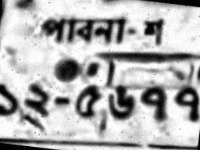 পাবনা-শ
১২-৫৬৭৭